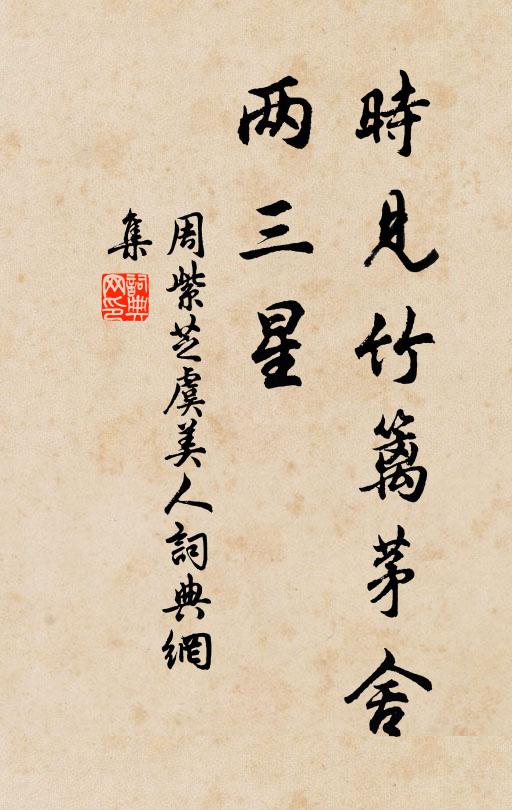 時見竹籬茅舍
两三星
周紫芝虞美人詞典網
集
詞典
网印